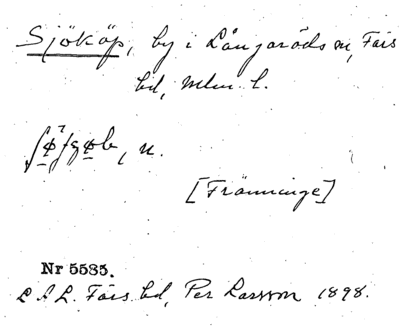 Sjököp, by i Långaröds sn, Färs
hd, Mlm l.
n.
[Fränninge]
Nr 5585.
L A L. Färs hd, Per Larsson 1898.